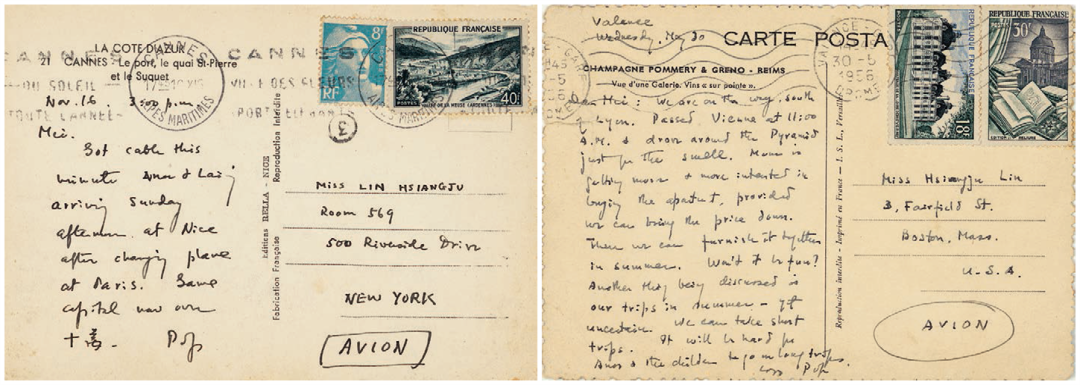 LA COTE D'AZUR
21 CANNES - Le port, le quai St-Pierre
et le Suquet
8F
RF
REPUBLIQUE FRANÇAISE
POSTES
40F
CANNES
CANNES
CANNES
ALPES MARITIMES
DU SOLEIL
VILLE DES FLEURS
TOUTE L'ANNÉE
Nov. 16 3:00 p.m.
Mei.
Got cable this
minute Anor & Laiy
arriving Sunday
afternoon at Nice
after changing plane
at Paris. Same
capital now own
十萬. Pop
Fabrication Française
Editions RELLA - NICE
Reproduction Interdite
3
MISS LIN HSIANGJU
Room 569
500 Riverside Drive
NEW YORK
AVION
Valence
Wednesday, May 30
CARTE POSTA
CHAMPAGNE POMMERY & GRENO - REIMS
Vue d'une Galerie. Vins « sur pointe ».
30-5
1956
18F
50F
REPUBLIQUE FRANÇAISE
Dear Mei: We are on the way, south
of Lyon. Passed Vienna at 11:00
A.M. & drove around the Pyramid
just for the smell. Mama is
getting more & more interested in
buying the apartment, provided
we can bring the price down.
Then we can furnish it together
in summer. Won't it be fun?
Another thing being discussed is
our trips in summer - yet
uncertain. We can take short
trips. It will be hard for
Anor & the children to go on long trips.
Love Pop
Reproduction interdite - Imprimé en France - I. S. L., Fermeture
Miss Hsiangju Lin
3, Fairfield St.
Boston, Mass.
U.S.A.
AVION